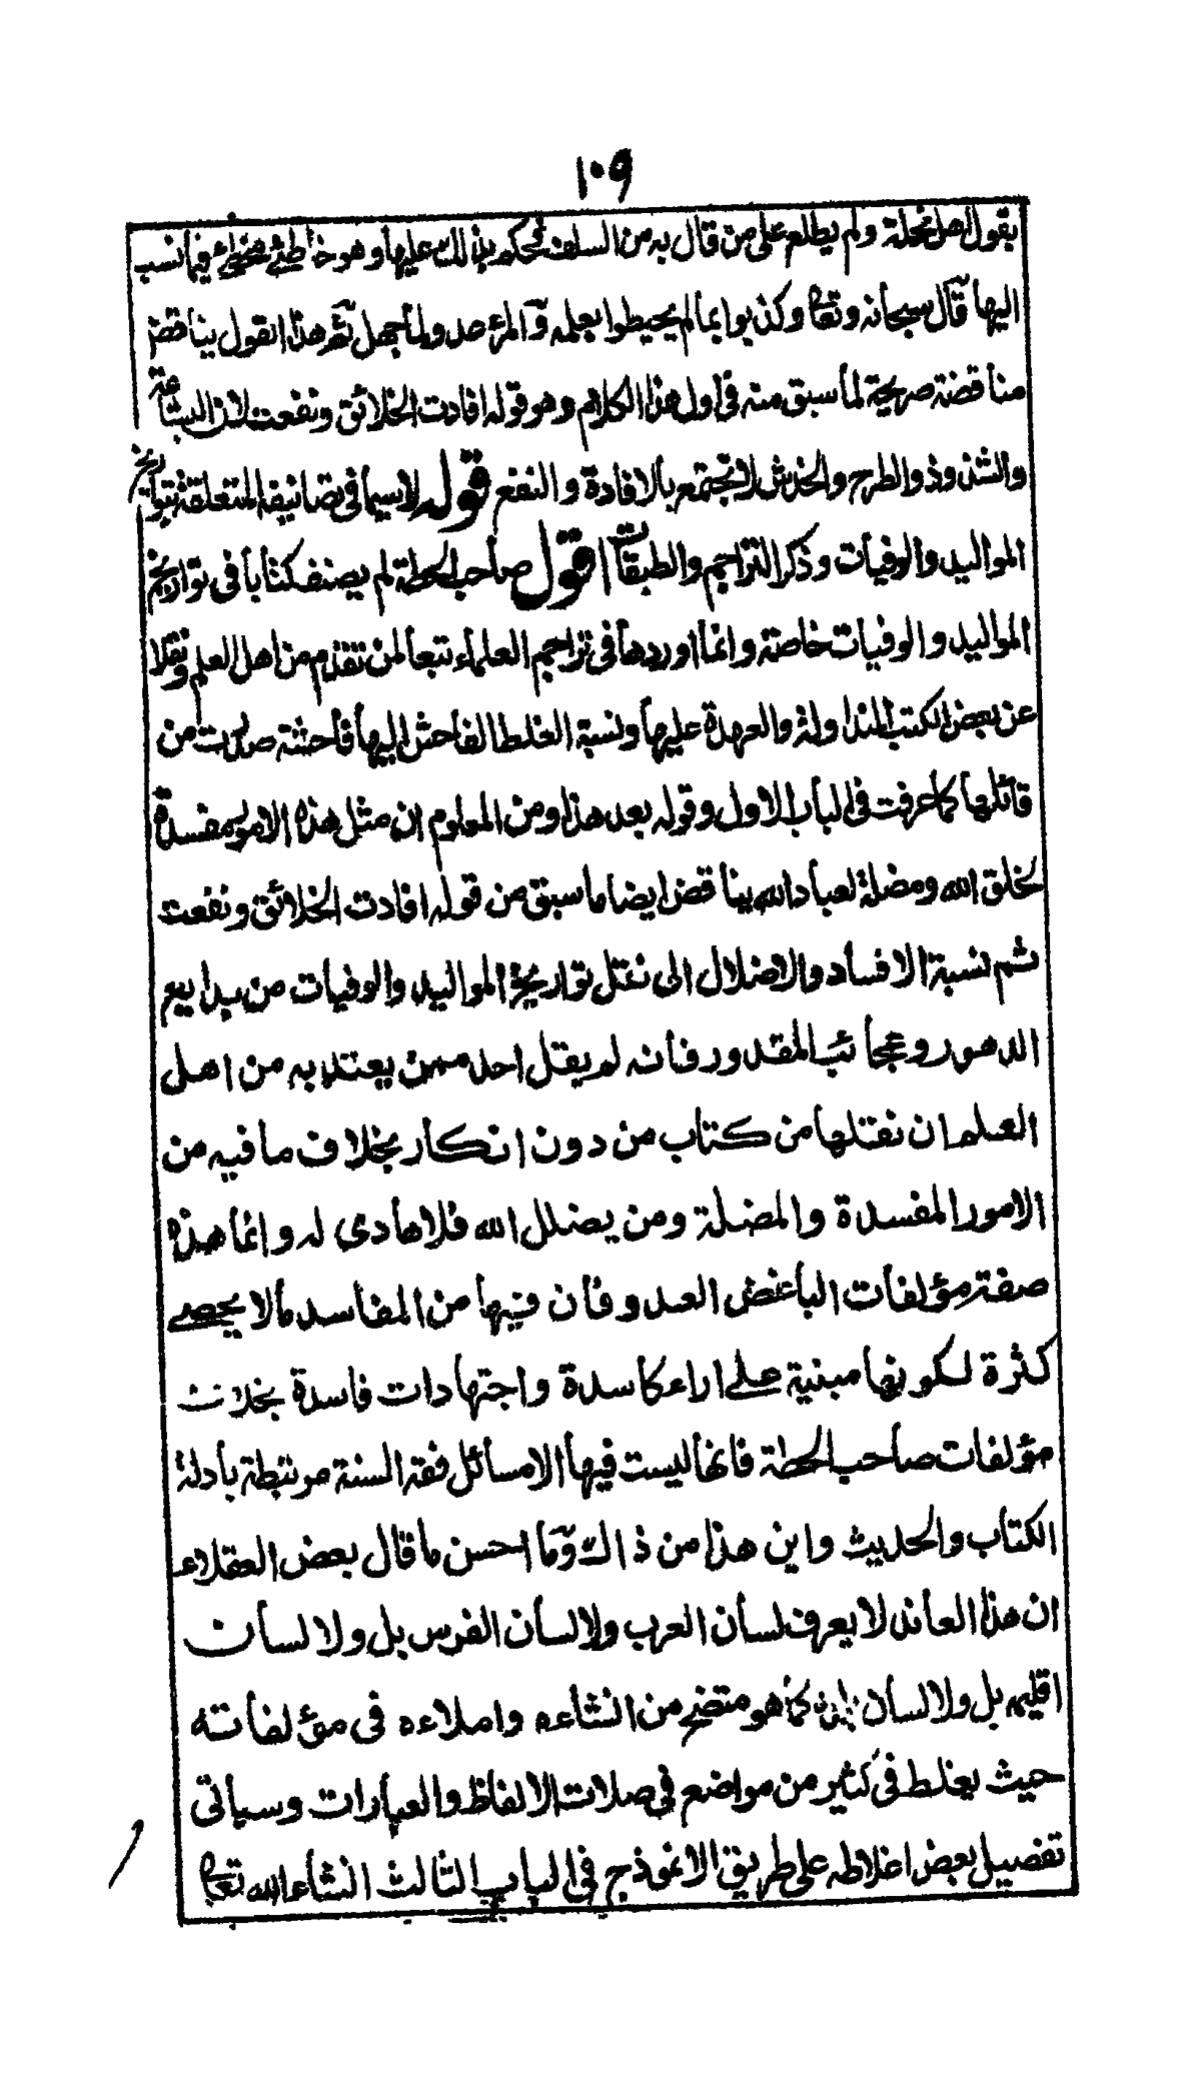 ١٠٩
بقول اهل نحلة ولم يطلع على من قال به من السلف فحكم بذلك عليها وهو خاطئ مخطئ فيما نسب
اليها قال سبحانه وتعا وكذبوا بما لم يحيطوا بعلمه والمرء عدو لما جهل ثم هذا القول يناقض
مناقضة صريحة لما سبق منه في اول هذا الكلام وهو قوله افادت الخلائق ونفعت لان البشاعة
والشذوذ والطرح والخدش لا تجتمع بالافادة والنفع قوله لا سيما في تصانيفه المتعلقة بتواريخ
المواليد والوفيات وذكر التراجم والطبقات اقول صاحب الحطة لم يصنف كتابا في تواريخ
المواليد والوفيات خاصة وانما اوردها في تراجم العلماء تبعا لمن تقدم من اهل العلم ونقلا
عن بعض الكتب المتداولة والعهدة عليها ونسبة الغلط الفاحش اليها فاحشة صدرت من
قائلها كما عرفت في الباب الاول وقوله بعد هذا ومن المعلوم ان مثل هذه الامور مفسدة
لخلق الله ومضلة لعباد الله يناقض ايضا ما سبق من قوله افادت الخلائق ونفعت
ثم نسبة الافساد والاضلال الى نقل تواريخ المواليد والوفيات من بدايع
الدهور وعجائب المقدور فانه لم يقل احد ممن يعتد به من اهل
العلم ان نقلها من كتاب من دون انكار بخلاف ما فيه من
الامور المفسدة والمضلة ومن يضلل الله فلا هادي له وانما هذه
صفة مؤلفات الباغض العدو فان فيها من المفاسد مالا يحصے
كثرة لكونها مبنية علے اراء كاسدة واجتهادات فاسدة بخلاف
مؤلفات صاحب الحطة فانها ليست فيها الا مسائل فقه السنة مرتبطة بادلة
الكتاب والحديث واين هذا من ذاك وما احسن ما قال بعض العقلاء
ان هذا العاند لا يعرف لسان العرب ولا لسان الفرس بل ولا لسان
اقليمه بل ولا لسان كما هو متضح من انشاءه واملاءه في مؤلفاته
حيث يغلط في كثير من مواضع في صلات الالفاظ والعبارات وسياتي
تفصيل بعض اغلاطه على طريق الانموذج في الباب الثالث انشاء الله تعا